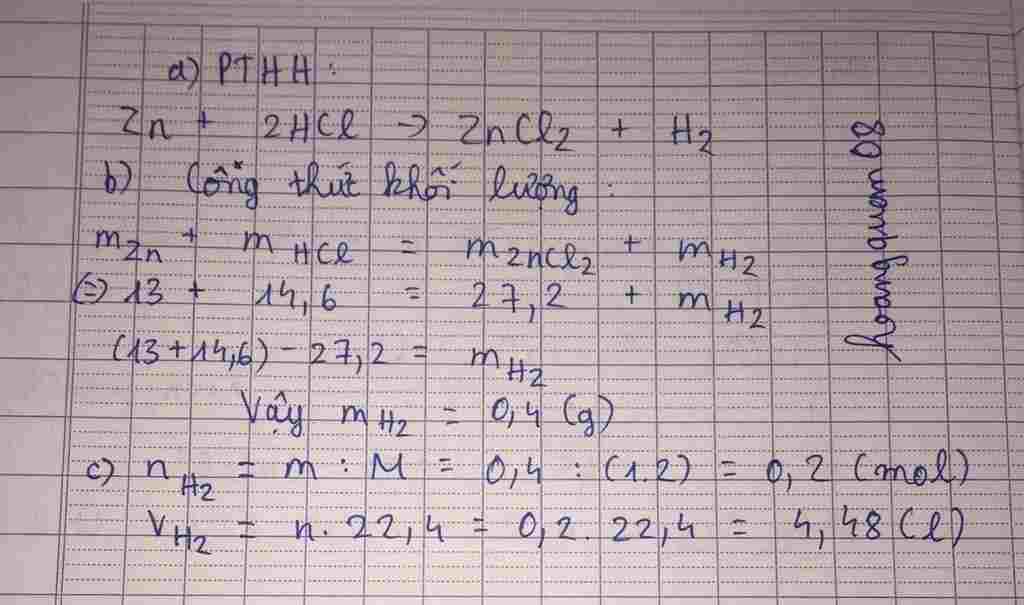 a) PTHH:
Zn + 2HCl → ZnCl₂ + H₂
b) Công thức khối lượng:
m_Zn + m_HCl = m_ZnCl₂ + m_H₂
(=) 13 + 14,6 = 27,2 + m_H₂
(13+14,6) - 27,2 = m_H₂
Vậy m_H₂ = 0,4 (g)
c) n_H₂ = m : M = 0,4 : (1.2) = 0,2 (mol)
V_H₂ = n. 22,4 = 0,2. 22,4 = 4,48 (l)
hoangbaongoc08